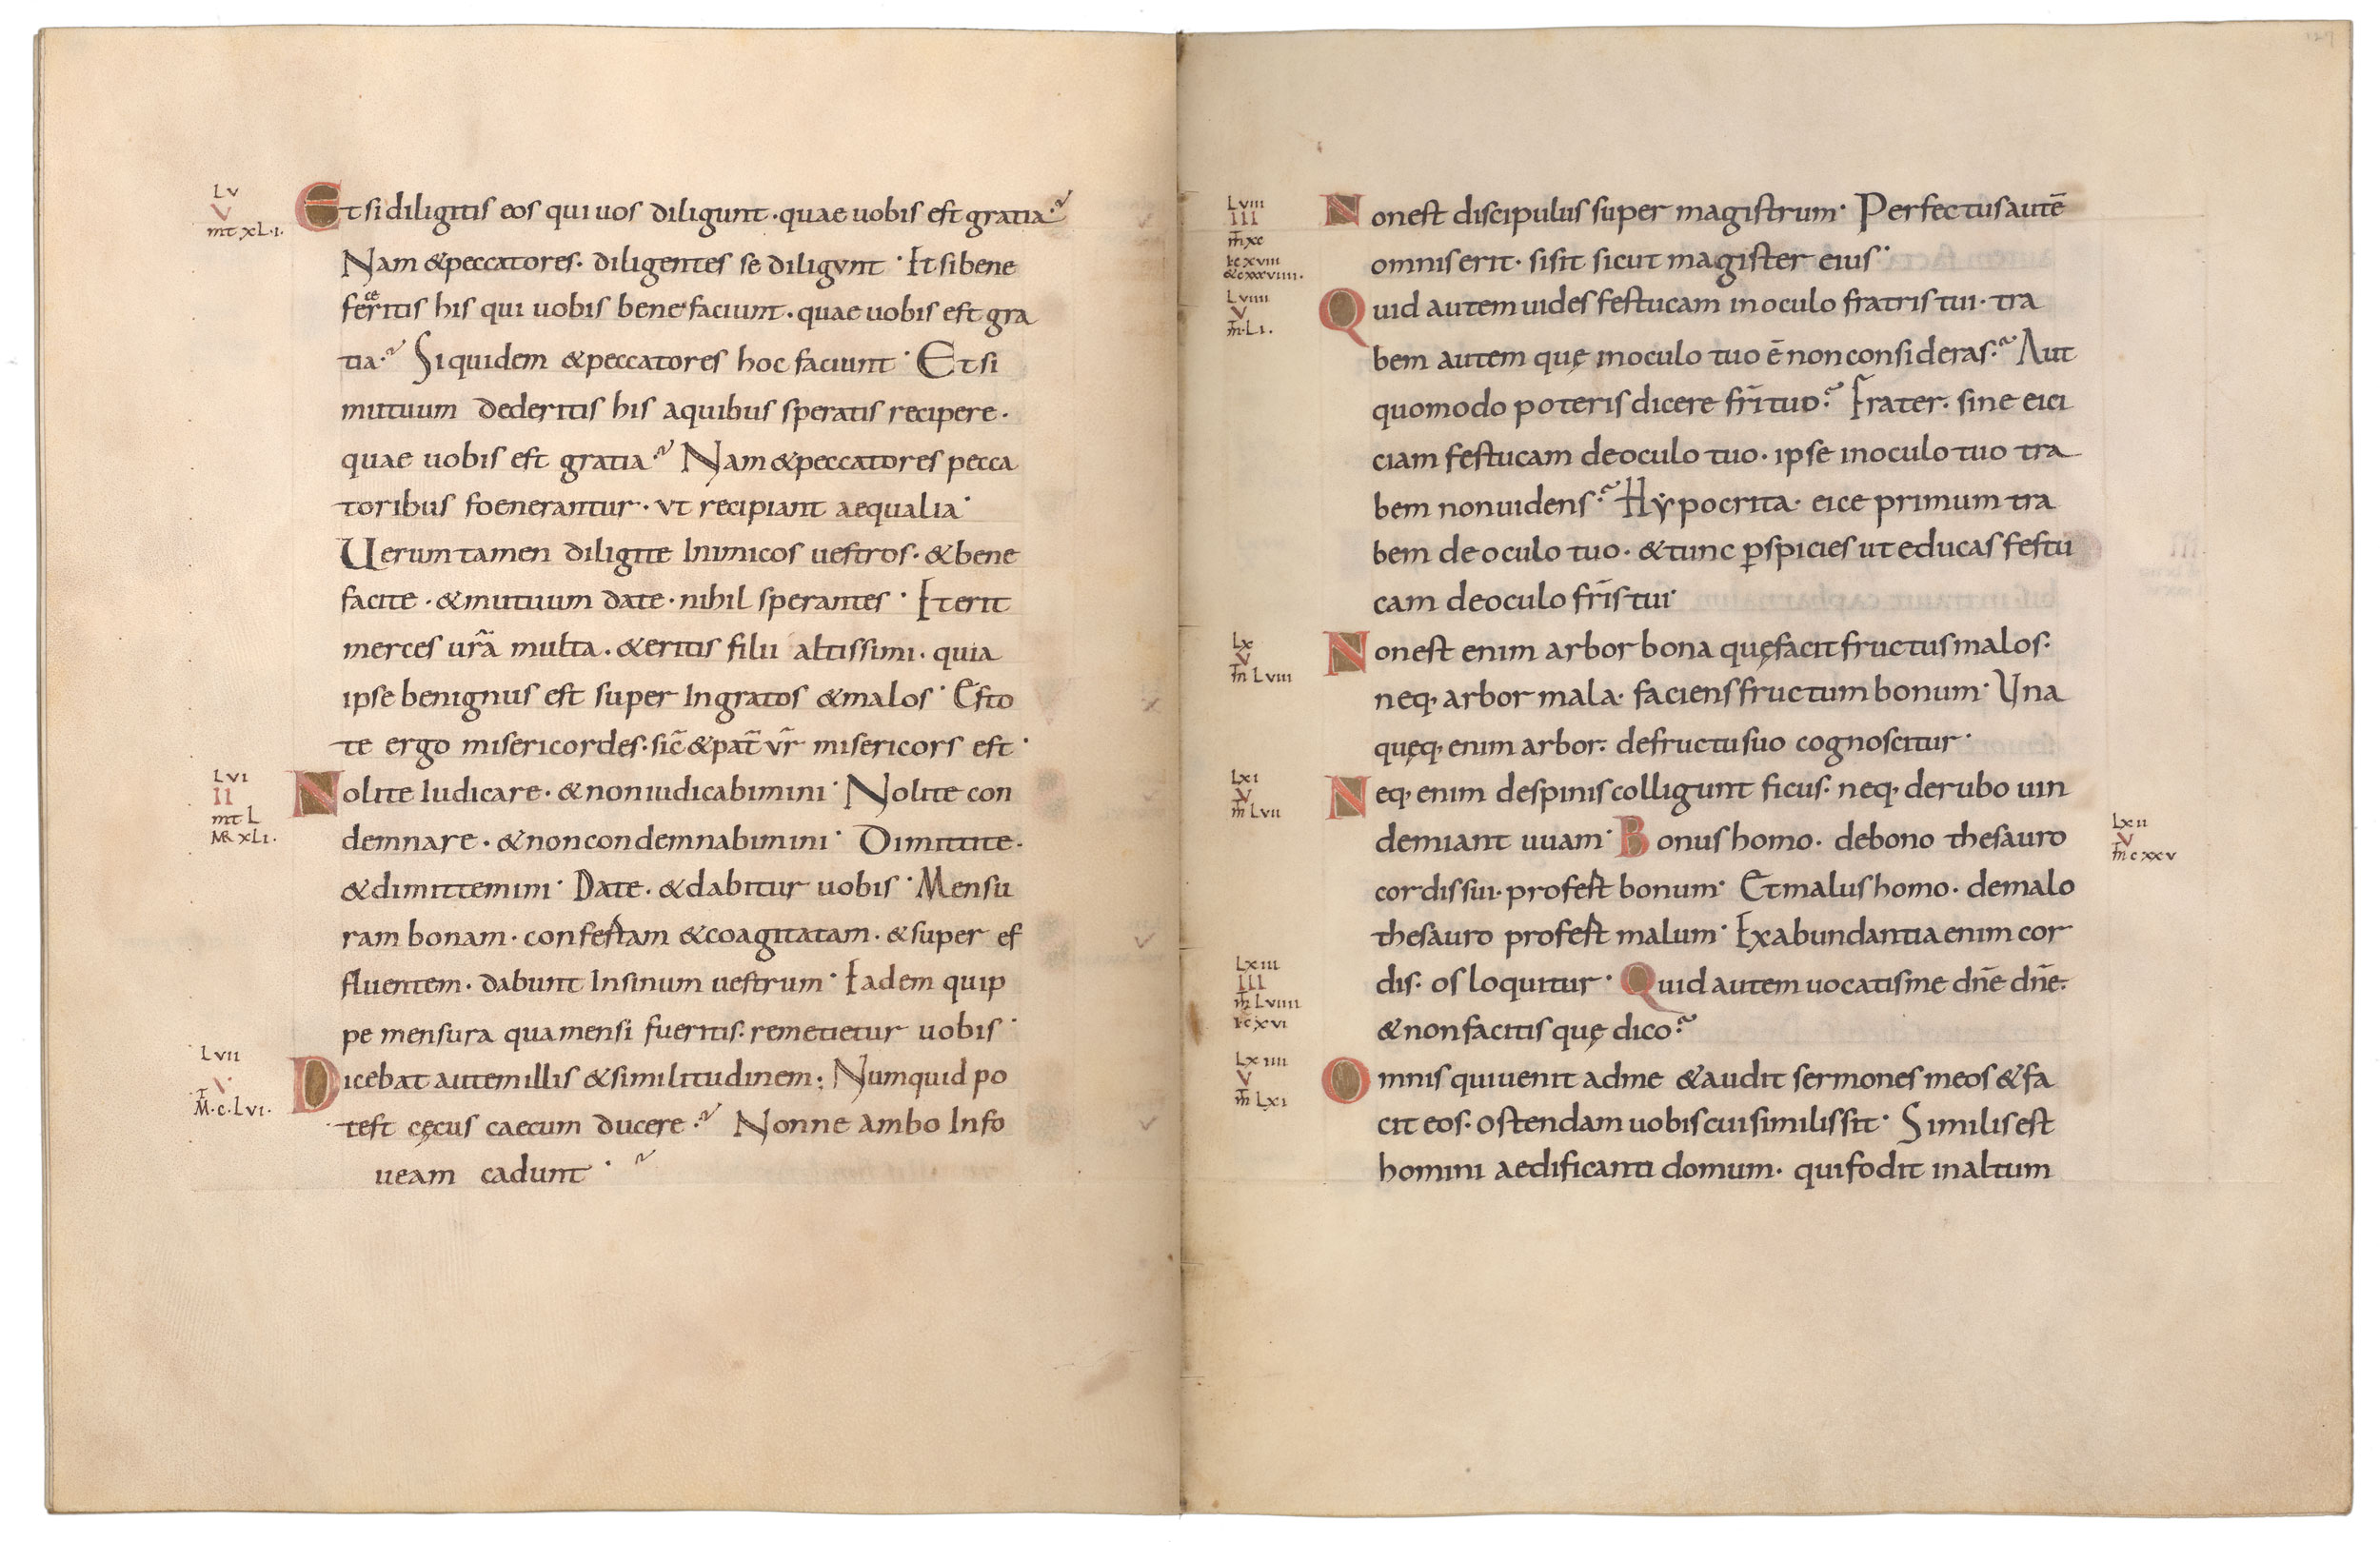 LV
V
mt xL.i.
Et si diligitis eos qui uos diligunt · quae uobis est gratia
Nam &peccatores · diligentes se diligunt · Et si bene
feceritis his qui uobis bene faciunt · quae uobis est gra
tia · Siquidem &peccatores hoc faciunt · Et si
mutuum dederitis his aquibus speratis recipere ·
quae uobis est gratia · Nam &peccatores pecca
toribus foenerantur · ut recipiant aequalia ·
Uerumtamen diligite Inimicos uestros · &bene
facite · &mutuum date · nihil sperantes · Et erit
merces ur̃a multa · &eritis filii altissimi · quia
ipse benignus est super Ingratos &malos · Esto
te ergo misericordes · sic̃ &pat̃ ur̃ misericors est ·
LVI
II
mt L
MR xLi.
Nolite Iudicare · &non iudicabimini · Nolite con
demnare · &non condemnabimini · Dimittite ·
&dimittemini · Date · &dabitur uobis · Mensu
ram bonam · confestam &coagitatam · &super ef
fluentem · dabunt Insinum uestrum · Eadem quip
pe mensura qua mensi fueritis · remetietur uobis ·
LVII
V
M·c·Lvi.
Dicebat autem illis &similitudinem; Numquid po
test cęcus caecum ducere · Nonne ambo Info
ueam cadunt ·
LVIII
III
m̃ xc
&cxxviiii.
Non est discipulus super magistrum · Perfectus autē
omnis erit · si sit sicut magister eius ·
LVIIII
V
m̃·Li.
Quid autem uides festucam in oculo fratris tui · tra
bem autem quę inoculo tuo ē non consideras · Aut
quomodo poteris dicere fr̄i tuo · Frater · sine eici
ciam festucam deoculo tuo · ipse inoculo tuo tra
bem non uidens · Hypocrita · eice primum tra
bem de oculo tuo · &tunc ꝑspicies ut educas festu
cam deoculo fr̄is tui ·
Lx
V
m̃ Lviii
Non est enim arbor bona quę facit fructus malos ·
neq· arbor mala · faciens fructum bonum · Una
quęq· enim arbor · defructu suo cognoscitur ·
Lxi
V
m̃ Lvii
Neq· enim despinis colligunt ficus · neq· derubo uin
demiant uuam · Bonus homo · debono thesauro
Lxii
V
m̃ cxxv
cordis sui · profest bonum · Et malus homo · demalo
thesauro profest malum · Exabundantia enim cor
Lxiii
III
m̃ Lviiii
dis · os loquitur · Quid autem uocatis me dn̄e dn̄e ·
&non facitis quę dico ·
Lxiiii
V
m̃ Lxi
Omnis qui uenit adme &audit sermones meos &fa
cit eos · ostendam uobis cui similis sit · Similis est
homini aedificanti domum · qui fodit inaltum